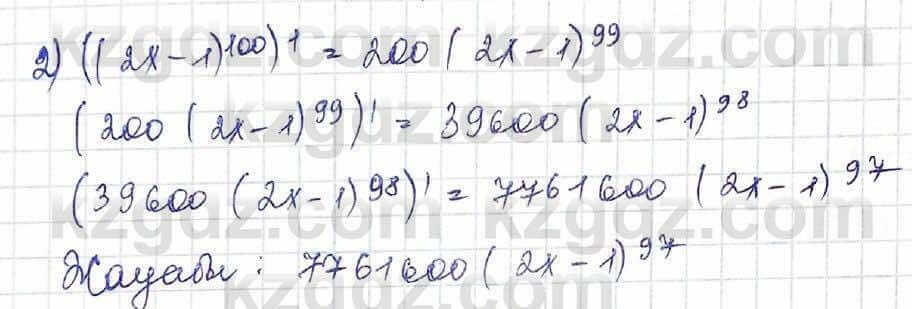 2) ((2x-1)^100)' = 200(2x-1)^99
(200(2x-1)^99)' = 39600(2x-1)^98
(39600(2x-1)^98)' = 7761600(2x-1)^97
Жауабы: 7761600(2x-1)^97
kzgdz.com